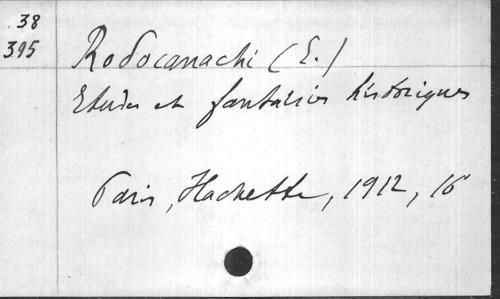 .38
395
Rodocanachi (E.)
Etudes et fantaisies historiques
Paris, Hachette, 1912, 16°